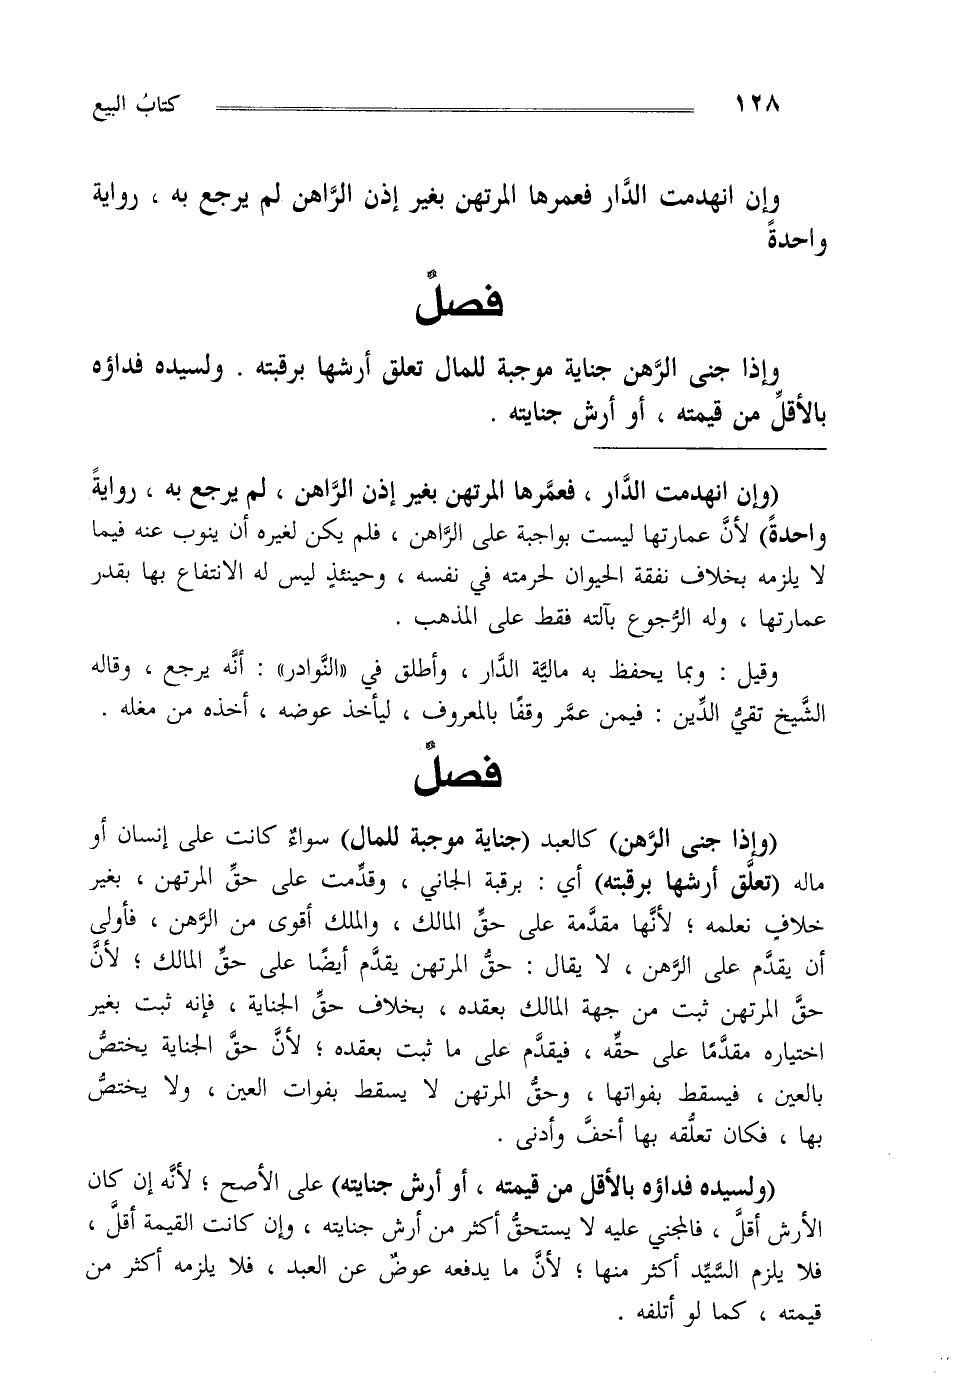 ١٢٨ كتابُ البيع
وإن انهدمت الدَّار فعمرها المرتهن بغير إذن الرَّاهن لم يرجع به ، رواية
واحدةً
فصلٌ
وإذا جنى الرَّهن جناية موجبة للمال تعلق أرشها برقبته . ولسيده فداؤه
بالأقلِّ من قيمته ، أو أرش جنايته .
(وإن انهدمت الدَّار ، فعمَّرها المرتهن بغير إذن الرَّاهن ، لم يرجع به ، روايةً
واحدةً) لأنَّ عمارتها ليست بواجبة على الرَّاهن ، فلم يكن لغيره أن ينوب عنه فيما
لا يلزمه بخلاف نفقة الحيوان لحرمته في نفسه ، وحينئذٍ ليس له الانتفاع بها بقدر
عمارتها ، وله الرُّجوع بآلته فقط على المذهب .
وقيل : وبما يحفظ به ماليَّة الدَّار ، وأطلق في «النَّوادر» : أنَّه يرجع ، وقاله
الشَّيخ تقيُّ الدِّين : فيمن عمَّر وقفًا بالمعروف ، ليأخذ عوضه ، أخذه من مغله .
فصلٌ
(وإذا جنى الرَّهن) كالعبد (جناية موجبة للمال) سواءٌ كانت على إنسان أو
ماله (تعلَّق أرشها برقبته) أي : برقبة الجاني ، وقدِّمت على حقِّ المرتهن ، بغير
خلافٍ نعلمه ؛ لأنَّها مقدَّمة على حقِّ المالك ، والملك أقوى من الرَّهن ، فأولى
أن يقدَّم على الرَّهن ، لا يقال : حقُّ المرتهن يقدَّم أيضًا على حقِّ المالك ؛ لأنَّ
حقَّ المرتهن ثبت من جهة المالك بعقده ، بخلاف حقِّ الجناية ، فإنه ثبت بغير
اختياره مقدَّمًا على حقِّه ، فيقدَّم على ما ثبت بعقده ؛ لأنَّ حقَّ الجناية يختصُّ
بالعين ، فيسقط بفواتها ، وحقُّ المرتهن لا يسقط بفوات العين ، ولا يختصُّ
بها ، فكان تعلُّقه بها أخفَّ وأدنى .
(ولسيده فداؤه بالأقل من قيمته ، أو أرش جنايته) على الأصح ؛ لأنَّه إن كان
الأرش أقلَّ ، فالمجني عليه لا يستحقُّ أكثر من أرش جنايته ، وإن كانت القيمة أقلَّ ،
فلا يلزم السَّيِّد أكثر منها ؛ لأنَّ ما يدفعه عوضٌ عن العبد ، فلا يلزمه أكثر من
قيمته ، كما لو أتلفه .